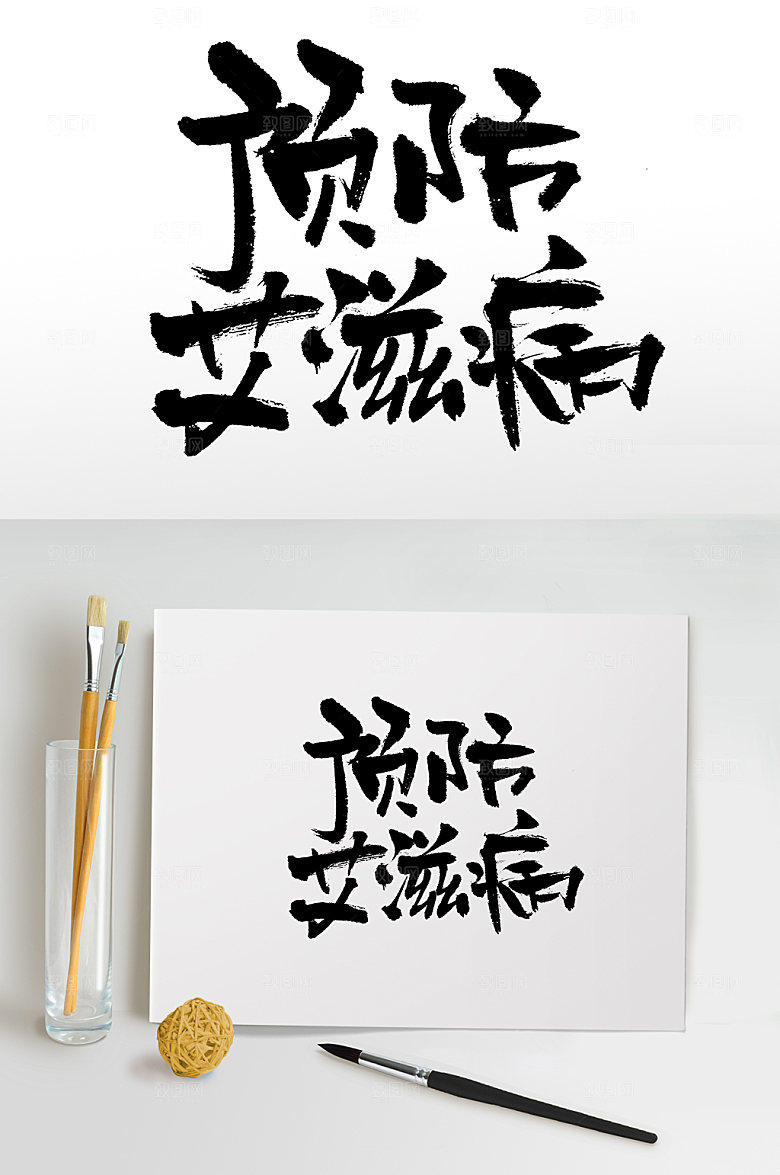 预防
艾滋病
预防
艾滋病